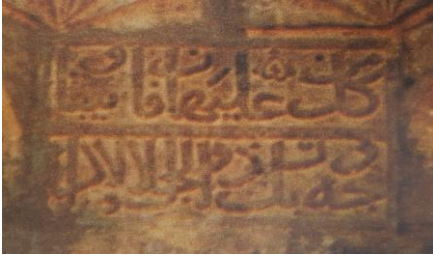 كل من عليها فان ويبقا
وجه ربك ذو الجلال والاكرام